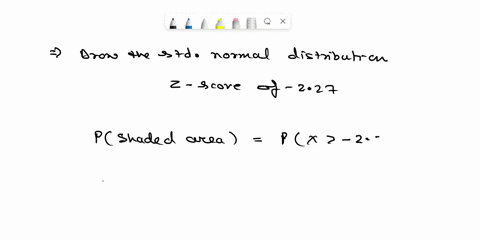 ⇒ Draw the std. normal distribution
Z-score of -2.27
P(shaded area) = P(x > -2.